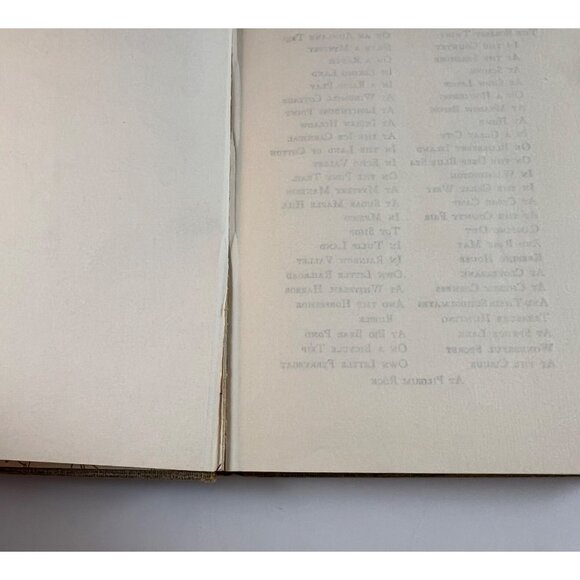 The Bobbsey Twins
In the Country
At the Seashore
At School
At Snow Lodge
On a Houseboat
At Meadow Brook
At Home
In a Great City
On Blueberry Island
On the Deep Blue Sea
In Washington
In the Great West
At Cedar Camp
At the County Fair
Camping Out
And Baby May
Keeping House
At Cloverbank
At Cherry Corners
And Their Schoolmates
Treasure Hunting
At Spruce Lake
Wonderful Secret
At the Circus
On an Airplane Trip
Solve a Mystery
On a Ranch
In Eskimo Land
In a Radio Play
At Windmill Cottage
At Lighthouse Point
At Indian Hollow
At the Ice Carnival
In the Land of Cotton
In Echo Valley
On the Pony Trail
At Mystery Mansion
At Sugar Maple Hill
In Mexico
Toy Shop
In Tulip Land
In Rainbow Valley
Own Little Railroad
At Whitesail Harbor
And the Horseshoe
Riddle
At Big Bear Pond
On a Bicycle Trip
Own Little Ferryboat
At Pilgrim Rock